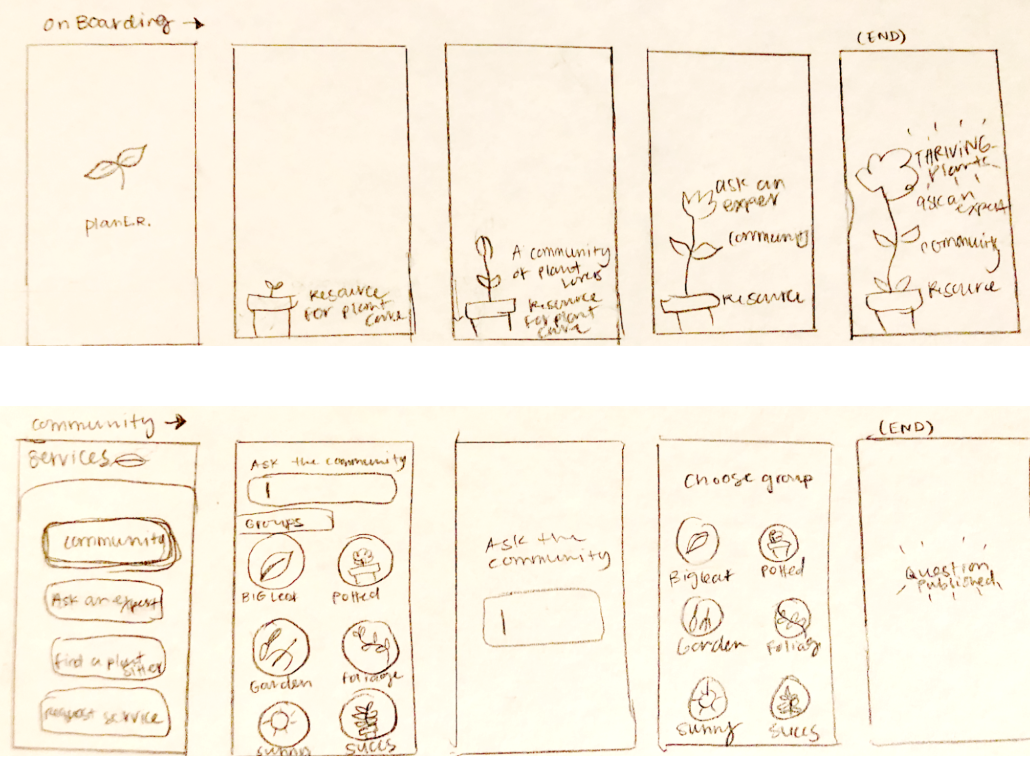 onBoarding →
planE.R.
Resource
for plant
care
A community
of plant
lovers
Resource
for plant
care
ask an
exper
community
Resource
(END)
THRIVING
plants
ask an
expert
community
Resource
community →
Services
community
Ask an expert
find a plant
sitter
request service
Ask the community
Groups
BIG Leaf
Potted
Garden
Foliage
Sunny
Succs
Ask the
community
Choose group
Big leaf
Potted
Garden
Foliag
Sunny
Succs
(END)
Question
Published